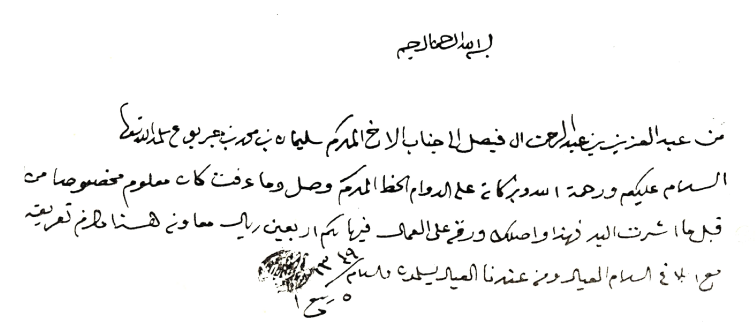 بسم الله الرحمن الرحيم
من عبد العزيز بن عبد الرحمن ال فيصل الى جناب الاخ المكرم سليمان بن محمد بن سلمه الله تعالى
السلام عليكم ورحمة الله وبركاته على الدوام الخط المكرم وصل وما عرفت كان معلوم مخصوصا من
قبل ما اشرت اليه فهذا واصلك ورقه على العمال فيها لكم اربعين ريال معاونه هذا ما لزم تعريفه
مع السلام العيال ومن عندنا العيال يسلمون والسلام
٥ ربيع ١ ١٣٤٩